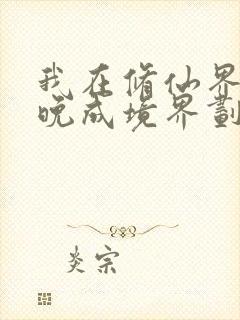 我在修仙界
晚成境界劃
炎宗